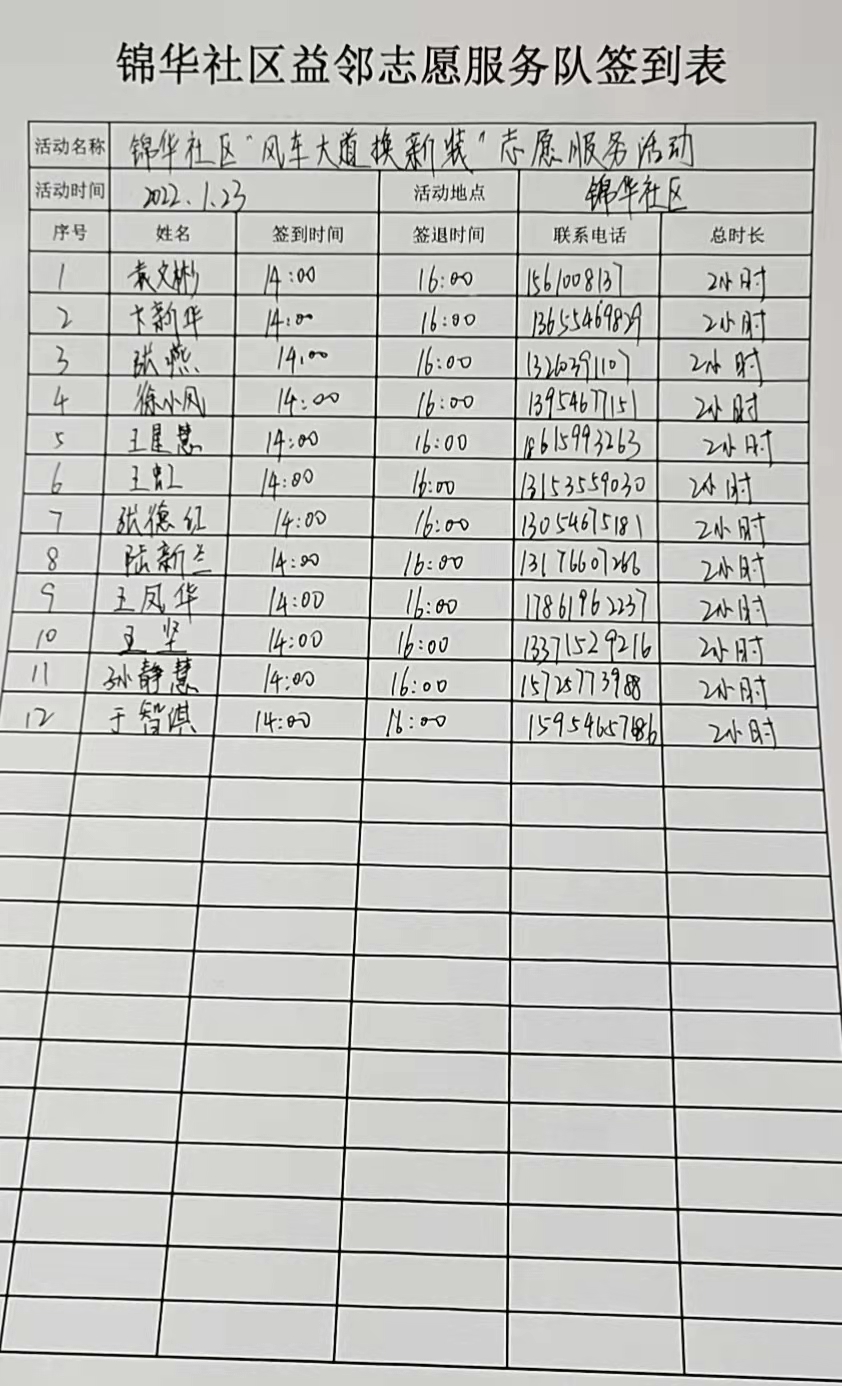 锦华社区益邻志愿服务队签到表
活动名称 锦华社区“风车大道换新装”志愿服务活动
活动时间 2022.1.23 活动地点 锦华社区
序号 姓名 签到时间 签退时间 联系电话 总时长
1 袁文彬 14:00 16:00 1561008137 2小时
2 大新华 14:00 16:00 13655469829 2小时
3 张燕 14:00 16:00 13260391107 2小时
4 徐小凤 14:00 16:00 13954677151 2小时
5 王星慧 14:00 16:00 18615993263 2小时
6 王虹 14:00 16:00 13153559030 2小时
7 张德红 14:00 16:00 13054675181 2小时
8 陆新兰 14:00 16:00 13176607266 2小时
9 王凤华 14:00 16:00 17861962237 2小时
10 王坚 14:00 16:00 13371529216 2小时
11 孙静慧 14:00 16:00 15725773988 2小时
12 于智淇 14:00 16:00 2小时